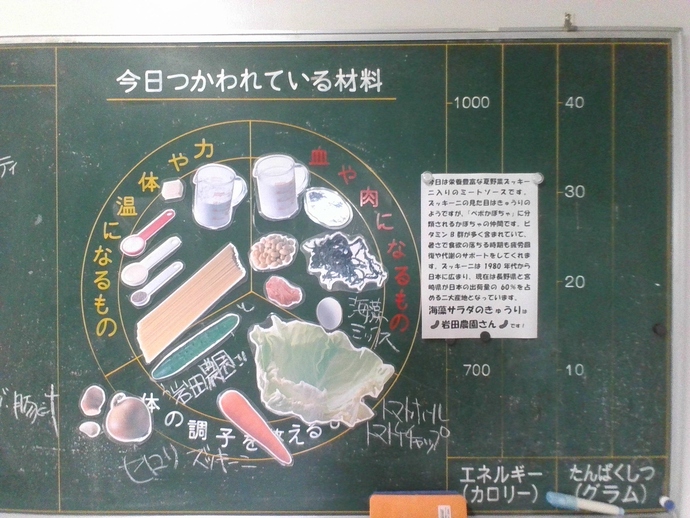 今日つかわれている材料
体や力
温になるもの
血や肉になるもの
体の調子を
える
海藻
ミックス
岩田農園さん
トマトホール
トマトケチャップ
セロリ ズッキーニ
ティ
1000
700
40
30
20
10
エネルギー
(カロリー)
たんぱくしつ
(グラム)
今日は栄養豊富な夏野菜ズッキー
ニ入りのミートソースです。
ズッキーニの見た目はきゅうりの
ようですが、「ペポかぼちゃ」に分
類されるかぼちゃの仲間です。ビ
タミンB群が多く含まれていて、
暑さで食欲の落ちる時期も疲労回
復や代謝のサポートをしてくれ
ます。ズッキーニは1980年代から
日本に広まり、現在は長野県と宮
崎県が日本の出荷量の60%を占
める二大産地となっています。
海藻サラダのきゅうりは
岩田農園さん
です!